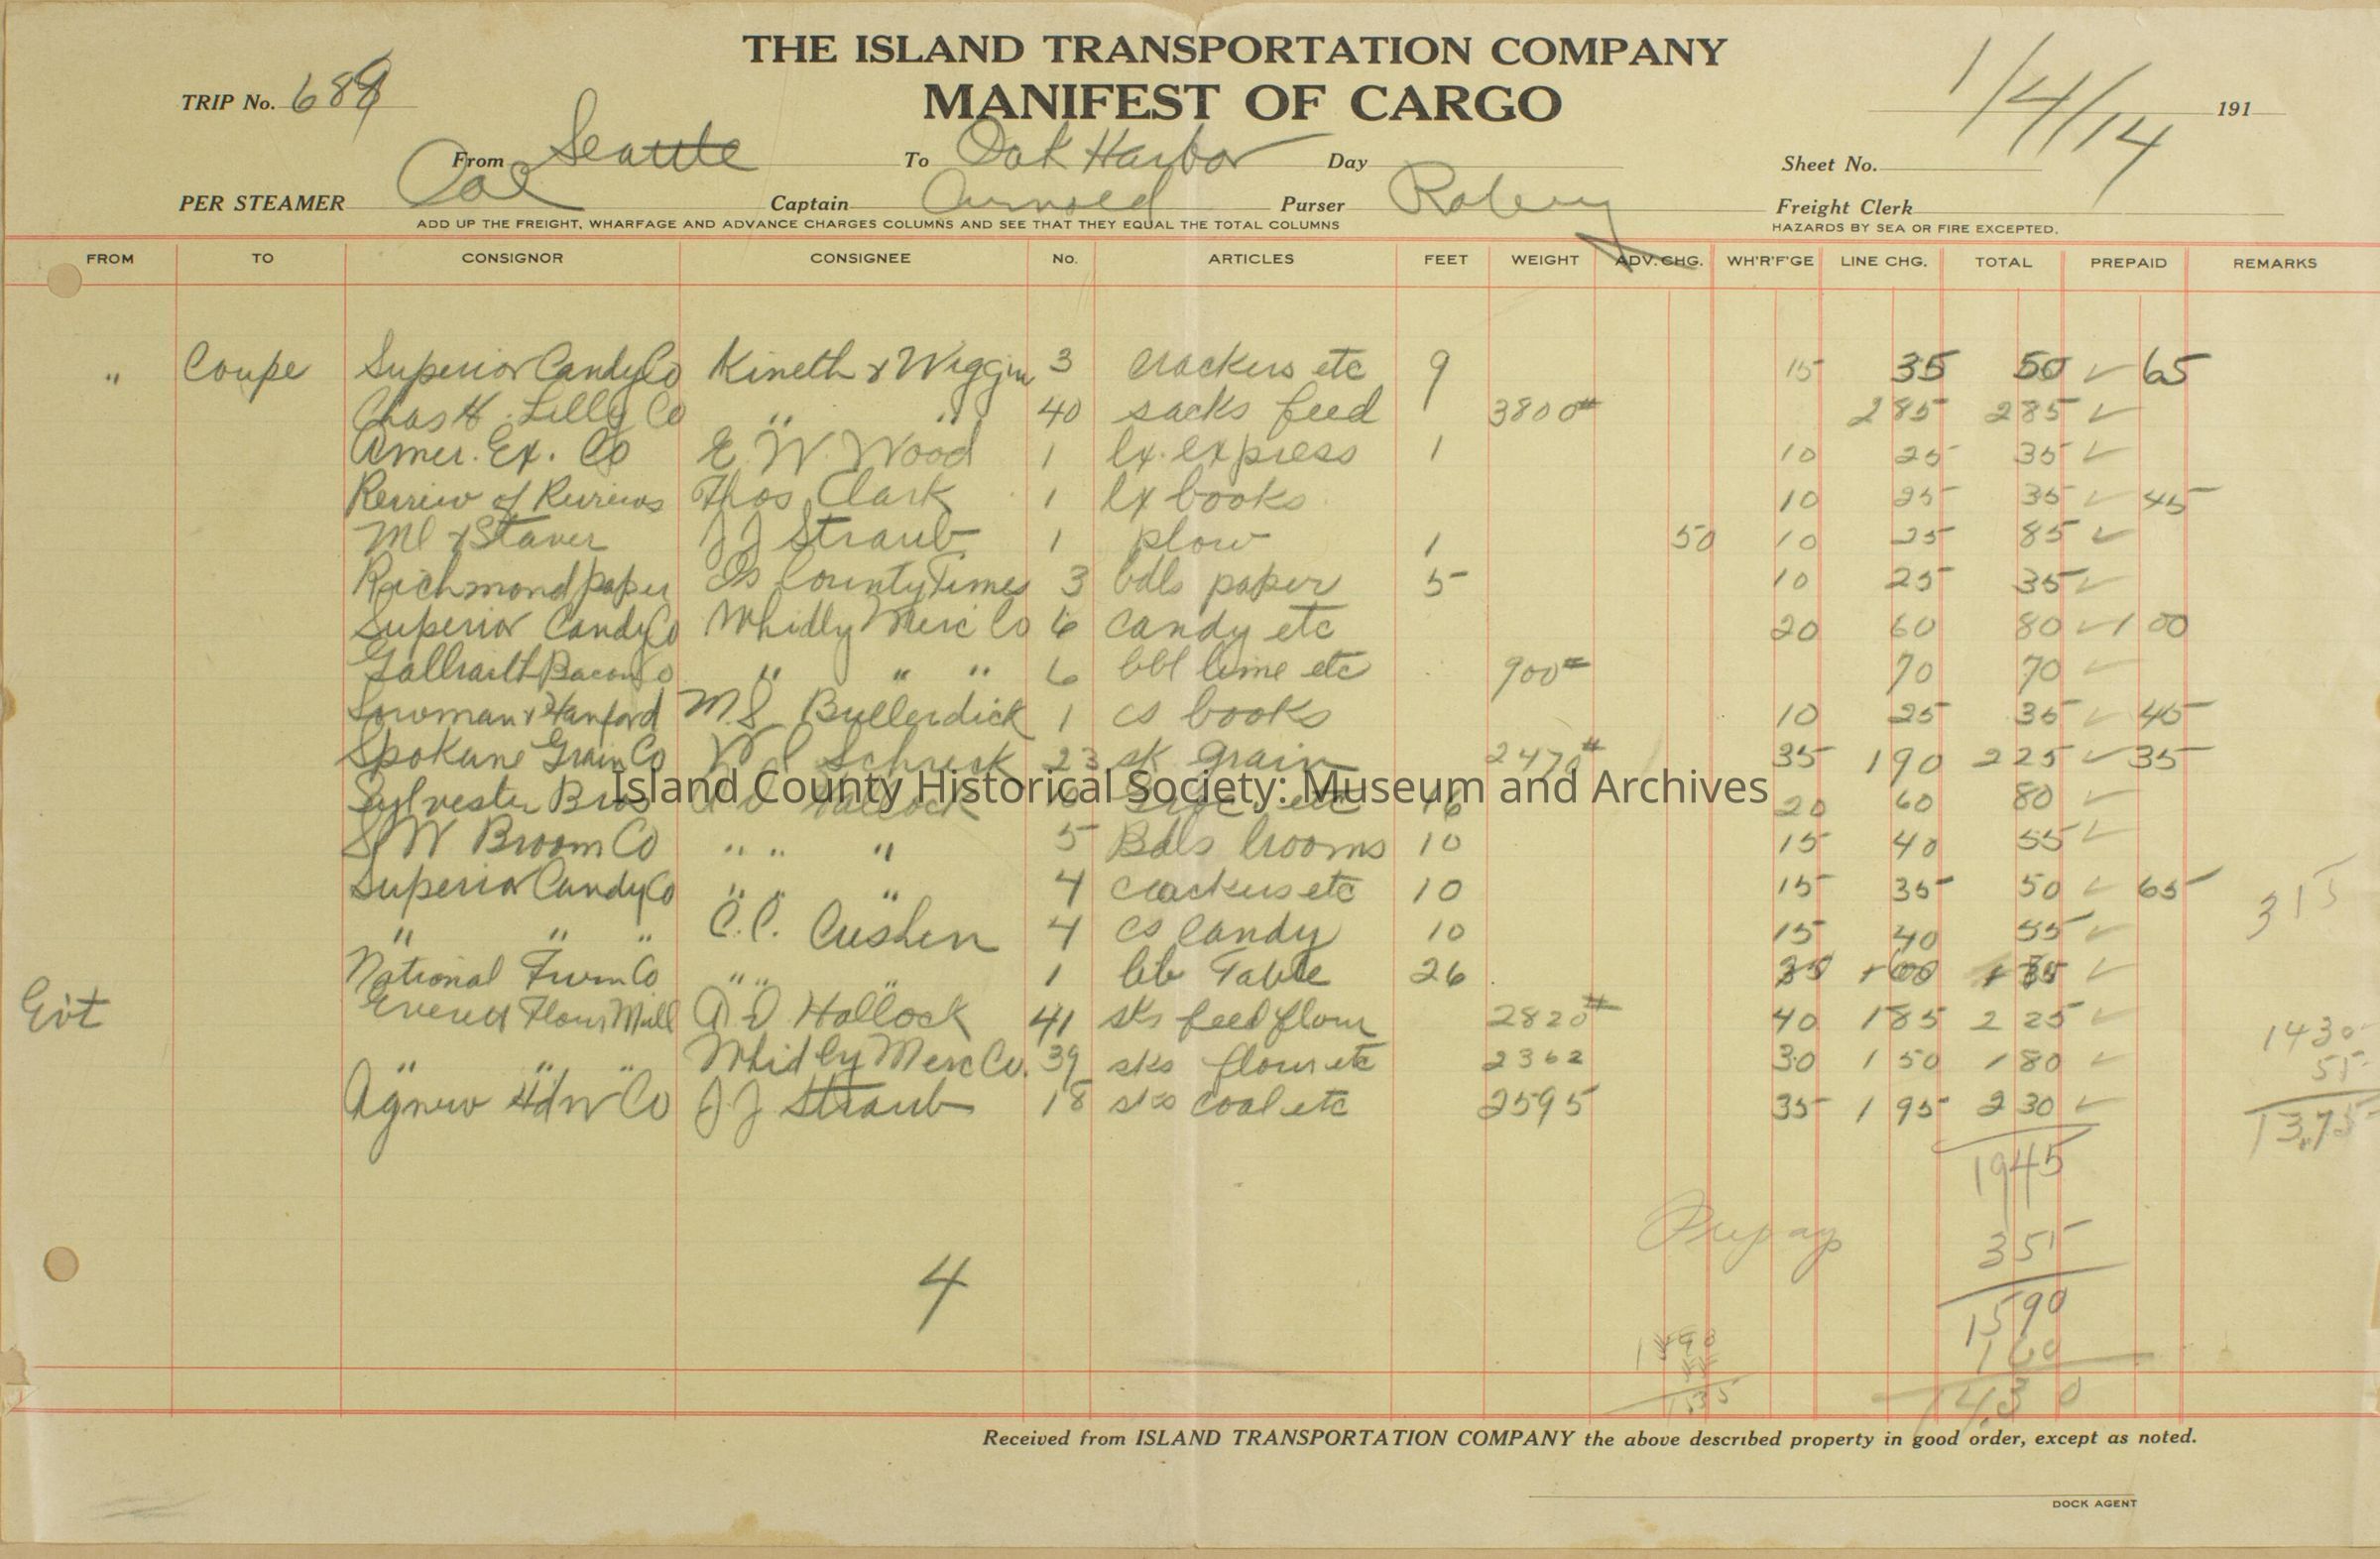 THE ISLAND TRANSPORTATION COMPANY
MANIFEST OF CARGO
TRIP No. 689 1/4/14 191
From Seattle To Oak Harbor Day Sheet No.
PER STEAMER Cal Captain Arnold Purser Freight Clerk
ADD UP THE FREIGHT, WHARFAGE AND ADVANCE CHARGES COLUMNS AND SEE THAT THEY EQUAL THE TOTAL COLUMNS HAZARDS BY SEA OR FIRE EXCEPTED.
FROM TO CONSIGNOR CONSIGNEE No. ARTICLES FEET WEIGHT ADV. CHG. WH'R'F'GE LINE CHG. TOTAL PREPAID REMARKS
" Coupe Superior Candy Co Kineth & Wiggin 3 crackers etc 9 15 35 50 ✓ 65
Chas H. Lilly Co " " 40 sacks feed 3800# 285 285 ✓
Amer. Ex. Co E. W. Wood 1 express 1 10 25 35 ✓
Review of Reviews Thos Clark 1 books 10 25 35 ✓ 45
Ml & Staver J J Straub 1 plow 1 50 10 25 85 ✓
Richmond paper Is County Times 3 bdls paper 5 10 25 35 ✓
Superior Candy Co Whidly Merc Co 6 candy etc 20 60 80 ✓ 1 00
Galbraith Bacon Co " " " 6 bbl lime etc 900# 70 70 ✓
Lowman & Hanford M. S. Bullerdick 1 cs books 10 25 35 ✓ 45
Spokane Grain Co Schreck 23 sk grain 2470# 35 190 225 ✓ 35
Sylvester Bros Hallock etc 16 20 60 80 ✓
Island County Historical Society: Museum and Archives
S W Broom Co " " " 5 Bdls brooms 10 15 40 55 ✓
Superior Candy Co " " " 4 crackers etc 10 15 35 50 ✓ 65 315
" " " C. C. Cushen 4 cs Candy 10 15 40 55 ✓
National Furn Co " " " 1 Table 26 35 100 1 35 ✓
Evt Everett Flour Mill A D Hallock 41 sks feed flour 2820# 40 185 2 25 ✓ 1430
" " " Whidby Merc Co. 39 sks flour etc 2362 30 1 50 180 ✓ 55
Agnew Hdw Co J J Straub 18 sks coal etc 2595 35 1 95 2 30 ✓ 13.75
1945
Prepay 355
1590
4 160
1430
135
Received from ISLAND TRANSPORTATION COMPANY the above described property in good order, except as noted.
DOCK AGENT